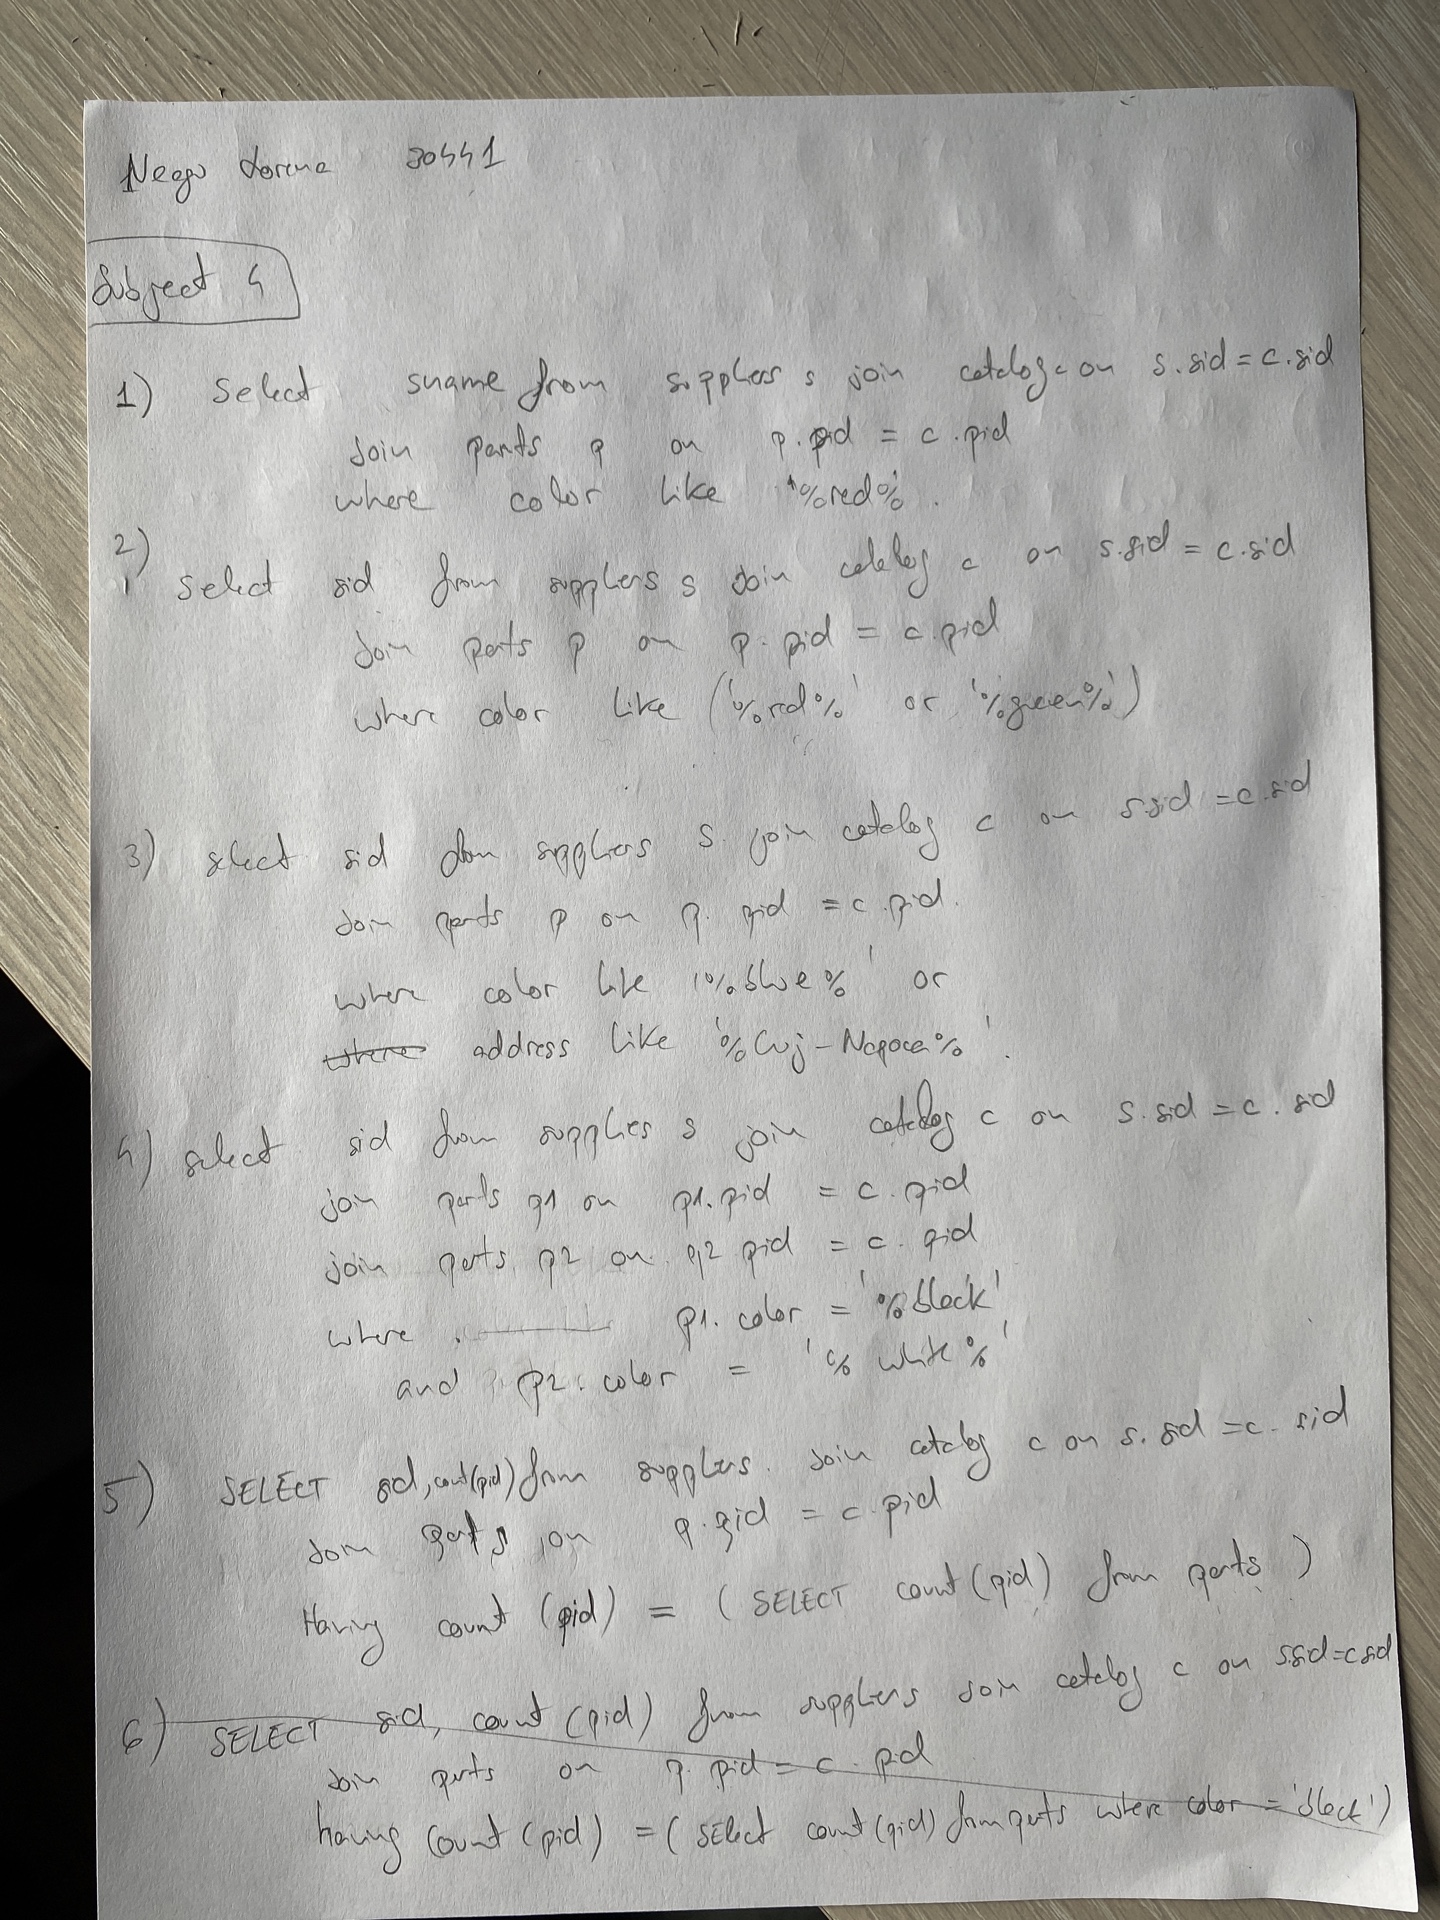 Nego Lorena 30441
Subject 4
1) Select sname from suppliers s join catalog c on s.sid = c.sid
Join parts p on p.pid = c.pid
where color like '%red%.
2) Select sid from suppliers s Join catalog c on s.sid = c.sid
Join parts p on p.pid = c.pid
where color like ('%red%' or '%green%')
3) select sid from suppliers s join catalog c on s.sid = c.sid
Join parts p on p.pid = c.pid.
where color like '%blue%' or
where address like '%Cluj-Napoca%'.
4) select sid from supplies s join catalog c on s.sid = c.sid
join parts p1 on p1.pid = c.pid
join parts p2 on p2 pid = c.pid
where p1.color = '%black'
and p2.color = '% white%'
5) SELECT sid, count(pid) from suppliers. Join catalog c on s.sid = c.sid
Join parts on p.pid = c.pid
Having count (pid) = (SELECT count(pid) from parts)
6) SELECT sid, count (pid) from suppliers Join catalog c on s.sid=c sid
Join parts on p.pid = c.pid
having Count (pid) = (SElect count(pid) from parts where color = 'black')